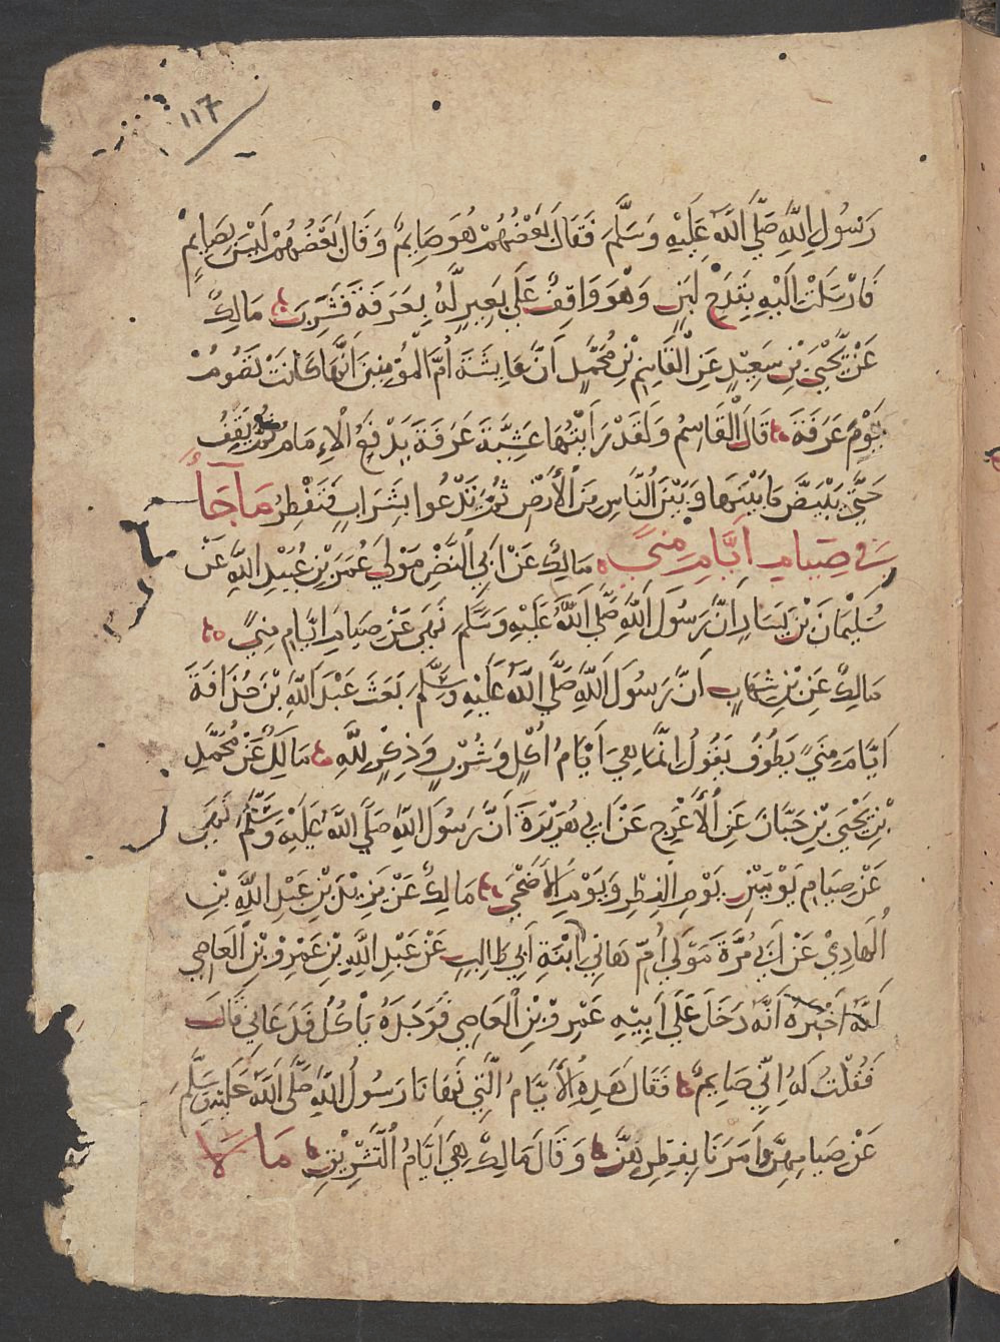 ١١٧
رَسُولِ اللَّهِ صَلَّى اللَّهُ عَلَيْهِ وَسَلَّمَ فَقَالَ بَعْضُهُمْ هُوَ صَايِمٌ وَقَالَ بَعْضُهُمْ لَيْسَ بِصَايِمٍ
فَارْسَلَتْ الَيْهِ بِقَدَحِ لَبَنٍ وَهْوَ وَاقِفٌ عَلَى بَعِيرٍ لَهُ بِعَرَفَةَ فَشَرِبَ مَالِكٌ
عَنْ يَّحْيَى بْنِ سَعِيْدٍ عَنِ الْقَاسِمِ بْنِ مُحَمَّدٍ اَنَّ عَايِشَةَ اُمَّ الْمُؤْمِنِينَ اَنَّهَا كَانَتْ تَصُومُ
يَوْمَ عَرَفَةَ قَالَ الْقَاسِمُ وَلَقَدْ رَاَيْتُهَا عَشِيَّةَ عَرَفَةَ يَدْفَعُ الْاِمَامُ ثُمَّ تَقِفُ
حَتَّى يَبْيَضَّ مَا بَيْنَهَا وَبَيْنَ النَّاسِ مِنَ الْأَرْضِ ثُمَّ تَدْعُوا بِشَرَابٍ فَتَفْطِرُ مَا جَآءَ
فِي صِيَامِ اَيَّامِ مِنىً مَالِكٌ عَنْ اَبِي النَّضْرِ مَوْلَى عُمَرَ بْنِ عُبَيْدِ اللَّهِ عَنْ
سُلَيْمَانَ بْنِ يَسَارٍ اَنَّ رَسُولَ اللَّهِ صَلَّى اللَّهُ عَلَيْهِ وَسَلَّمَ نَهَى عَنْ صِيَامِ ايَّامِ مِنىً
مَالِكٌ عَنِ بْنِ شِهَابٍ اَنَّ رَسُولَ اللَّهِ صَلَّى اللَّهُ عَلَيْهِ وَسَلَّمَ بَعَثَ عَبْدَ اللَّهِ بْنَ حُذَافَةَ
اَيَّامَ مِنىً يَطُوفُ يَقُولُ انَّمَا هِيَ اَيَّامُ اُكْلٍ وَشُرْبٍ وَذِكْرٍ لِلَّهِ مَالِكٌ عَنْ مُحَمَّدِ
بْنِ يَحْيَى بْنِ حَبَّانَ عَنِ الْأَعْرَجِ عَنْ اَبِي هُرَيْرَةَ اَنَّ رَسُولَ اللَّهِ صَلَّى اللَّهُ عَلَيْهِ وَسَلَّمَ نَهَى
عَنْ صِيَامِ يَوْمَيْنِ يَوْمِ الفِطْرِ وَيَوْمِ الأَضْحَى مَالِكٌ عَنْ يَزِيْدَ بْنِ عَبْدِ اللَّهِ بْنِ
الْهَادِيْ عَنْ اَبِي مُرَّةَ مَوْلَى اُمِّ هَانِي ابْنَةِ اَبِي طَالِبٍ عَنْ عَبْدِ اللَّهِ بْنِ عَمْرِو بْنِ الْعَاصِي
اَنَّهُ اَخْبَرَهُ اَنَّهُ دَخَلَ عَلَى اَبِيْهِ عَمْرِو بْنِ الْعَاصِي فَوَجَدَهُ يَاْكُلُ فَدَعَانِي قَالَ
فَقُلْتُ لَهُ اِنِّي صَايِمٌ فَقَالَ هَذِهِ الأَيَّامُ الَّتِي نَهَانَا رَسُولُ اللَّهِ صَلَّى اللَّهُ عَلَيْهِ وَسَلَّمَ
عَنْ صِيَامِهِنَّ وَاَمَرَنَا بِفِطْرِهِنَّ وَقَالَ مَالِكٌ هِيَ اَيَّامُ التَّشْرِيْقِ مَا لَا